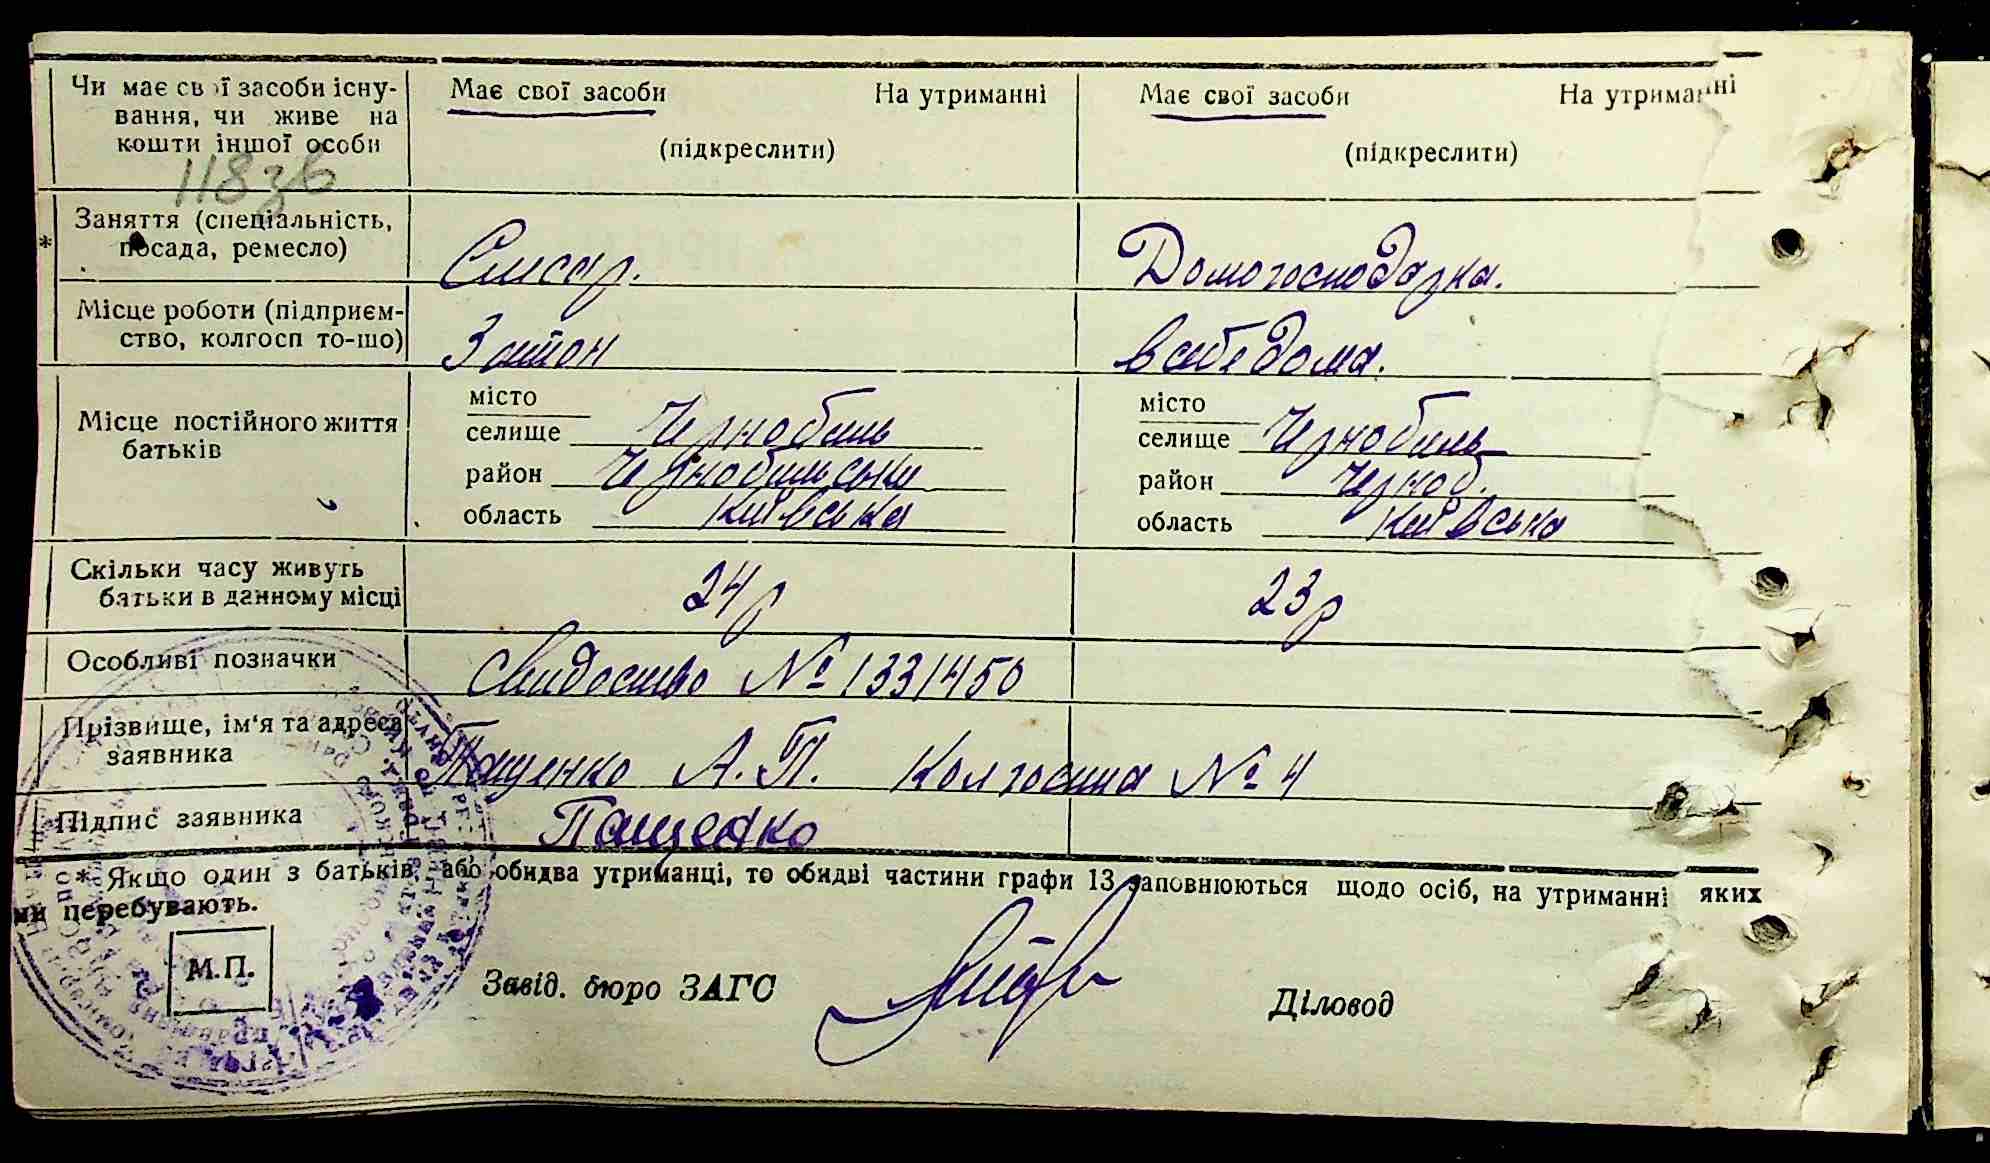 Чи має свої засоби існу- Має свої засоби На утриманні Має свої засоби На утриманні
вання, чи живе на
кошти іншої особи (підкреслити) (підкреслити)
118зв
Заняття (спеціальність,
* посада, ремесло) Слюсар. Домогосподарка.
Місце роботи (підприєм-
ство, колгосп то-що) Затон в себе дома.
Місце постійного життя
батьків
місто місто
селище Чернобиль селище Чернобиль
район Чернобильськи район Черноб.
область Київська область Київська
Скільки часу живуть
батьки в данному місці 24 р 23 р
Особливі позначки Свидоство № 1331450
Прізвище, ім'я та адреса
заявника Пащенко А. П. Колгоспна № 4
Підпис заявника Пащенко
* Якщо один з батьків, або обидва утриманці, то обидві частини графи 13 заповнюються щодо осіб, на утриманні яких
ми перебувають.
М.П.
Завід. бюро ЗАГС Діловод